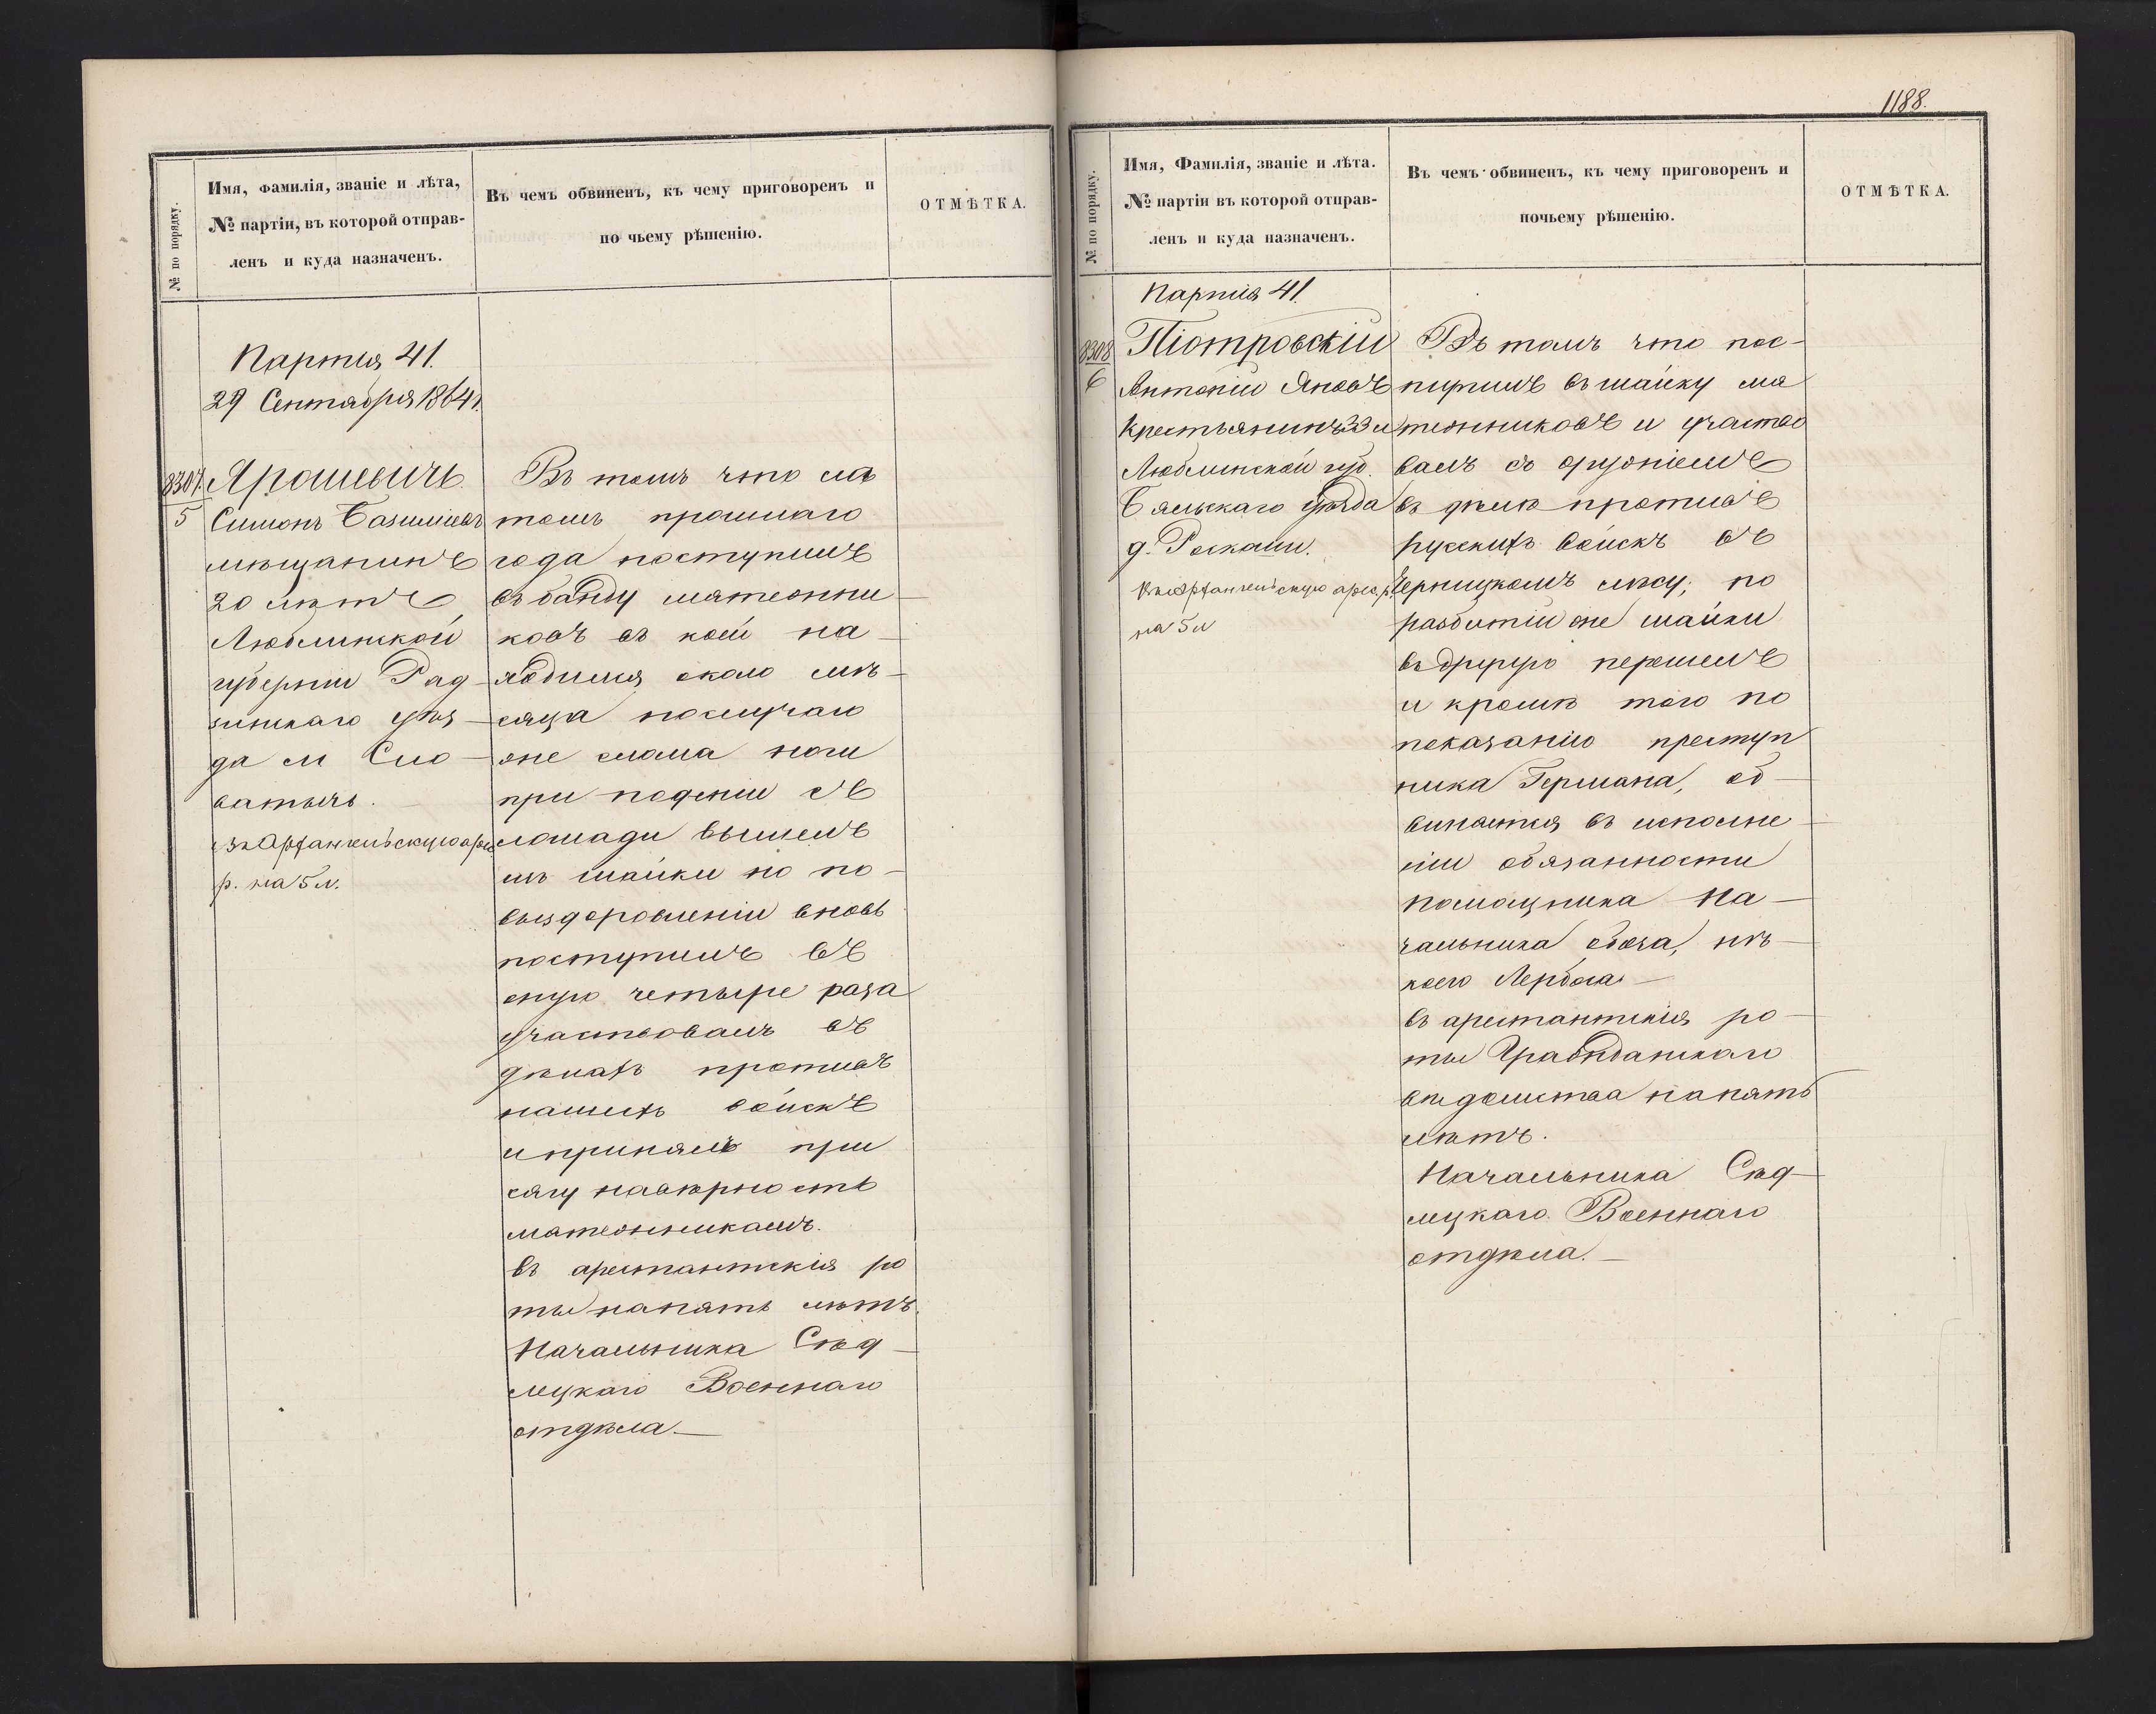 № по порядку.
Имя, фамилія, званіе и лѣта,
№ партіи, въ которой отправ-
ленъ и куда назначенъ.
Въ чемъ обвиненъ, къ чему приговоренъ и
по чьему рѣшенію.
ОТМѢТКА.
Партія 41.
29 Сентября 1864 г.
8307.
5
Ярошевичъ
Симонъ
мѣщанинъ
20 лѣтъ
Люблинской
губерніи Рад-
зинскаго уѣз-
да м Сло-
ватычъ.
въ Архангельскую арес
р. на 5 л.
Въ томъ что лѣ
томъ прошлаго
года поступилъ
въ банду мятежни-
ковъ въ коей на-
ходился около мѣ-
сяца по случаю
же слома ноги
при паденіи съ
лошади вышелъ
изъ шайки но по-
выздоровленіи вновь
поступилъ въ
оную четыре раза
участвовалъ въ
дѣлахъ противъ
нашихъ войскъ
и принялъ при
сягу на вѣрность
мятежникамъ.
въ арестантскія ро
ты на пять лѣтъ.
Начальника Сѣд-
лецкаго Военнаго
отдѣла.—
1188.
№ по порядку.
Имя, Фамилія, званіе и лѣта.
№ партіи въ которой отправ-
ленъ и куда назначенъ.
Въ чемъ обвиненъ, къ чему приговоренъ и
почьему рѣшенію.
ОТМѢТКА.
Партія 41.
8308
6
Піотровскій
Антоній Яновъ
крестьянинъ 33 л
Люблинской губ.
Бяльскаго уѣзда
д. Роскоши.
въ Архангельскую арес. р.
на 5 л
Въ томъ что пос-
тупилъ въ шайку мя
тежниковъ и участво
валъ съ оружіемъ
въ дѣлѣ противъ
русскихъ войскъ въ
лѣсу; по
разбитіи же шайки
въ другую перешелъ
и кромѣ того по
показанію преступ
ника Германа, об-
виняется въ исполне-
ніи обязанности
помощника на-
чальника обоза, нѣ-
коего —
въ арестантскія ро-
ты Гражданскаго
вѣдомства на пять
лѣтъ.
Начальника Сѣд-
лецкаго Военнаго
отдѣла.—